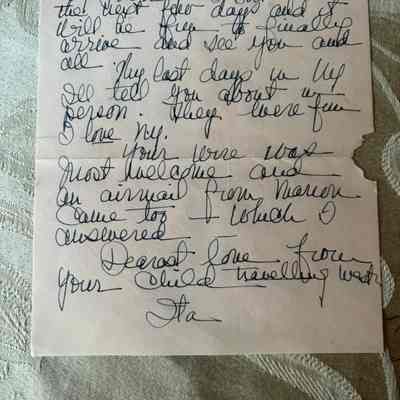 the next few days and it
will be fun to finally
arrive and see you and
all. My last days in Ny
I'll tell you about in
person. They were fun
I love Ny.
Your wire was
most welcome and
an airmail from Marion
came too - which I
answered
Dearest love from
your child travelling west
Ita